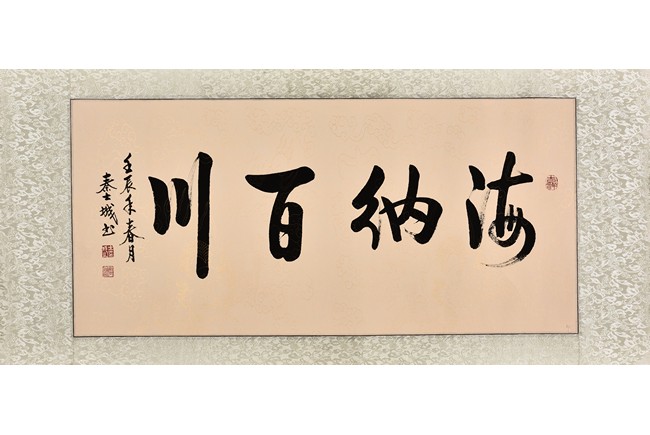 海纳百川
壬辰年春月
秦士城书